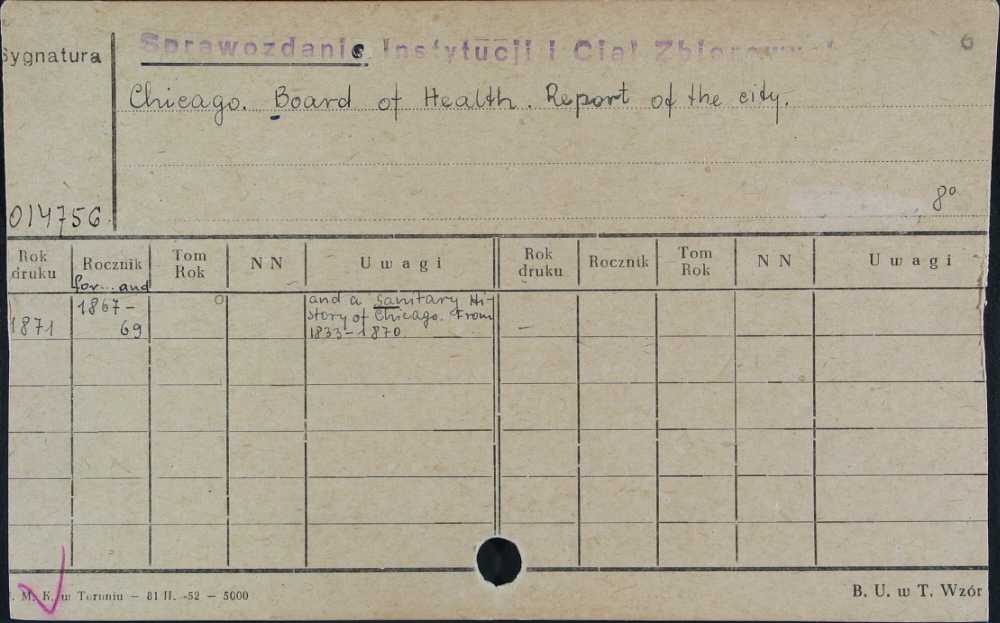 Sygnatura
Sprawozdanie Instytucji i Ciał
6
Chicago. Board of Health. Report of the city.
8°
014756
Rok druku Rocznik Tom Rok NN Uwagi Rok druku Rocznik Tom Rok NN Uwagi
for... and
1871 1867-69 and a sanitary Hi-
story of Chicago. From
1833-1870
M. K. w Toruniu — 81 II. -52 — 5000
B. U. w T. Wzór